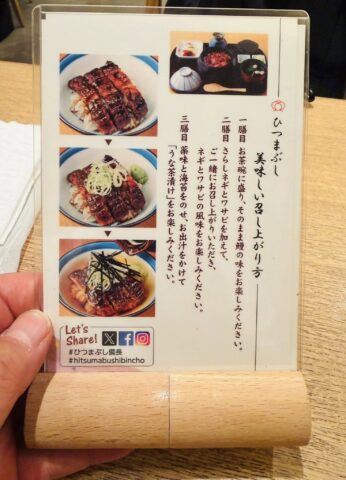 ひつまぶし
美味しい召し上がり方
一膳目 お茶碗に盛り、そのまま鰻の味をお楽しみください。
二膳目 さらしネギとワサビを加えて、
ご一緒にお召し上がりいただき、
ネギとワサビの風味をお楽しみください。
三膳目 薬味と海苔をのせ、お出汁をかけて
「うな茶漬け」をお楽しみください。
Let's
Share!
#ひつまぶし備長
#hitsumabushibincho